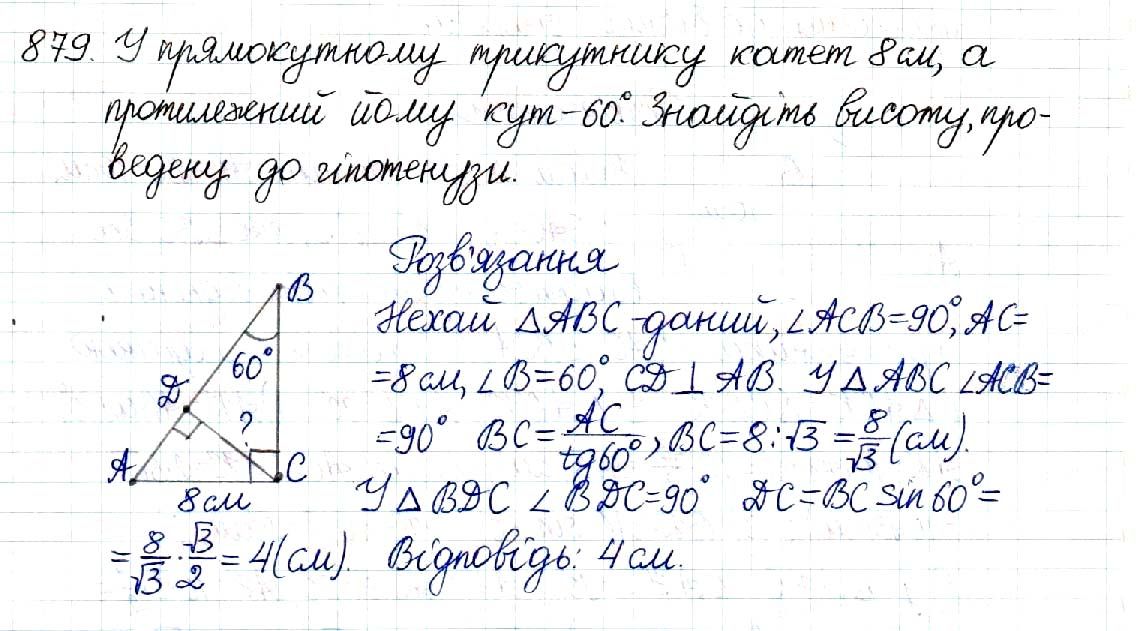 879. У прямокутному трикутнику катет 8 см, а
протилежний йому кут – 60°. Знайдіть висоту, про-
ведену до гіпотенузи.
Розв'язання
Нехай △ABC - даний, ∠ACB=90°, AC=
=8 см, ∠B=60°, CD⊥AB. У △ABC ∠ACB=
=90° BC=AC/tg60°, BC=8:√3=8/√3 (см).
У △BDC ∠BDC=90° DC=BC sin60°=
=8/√3·√3/2=4(см). Відповідь: 4 см.
B
60°
D
?
A
C
8 см